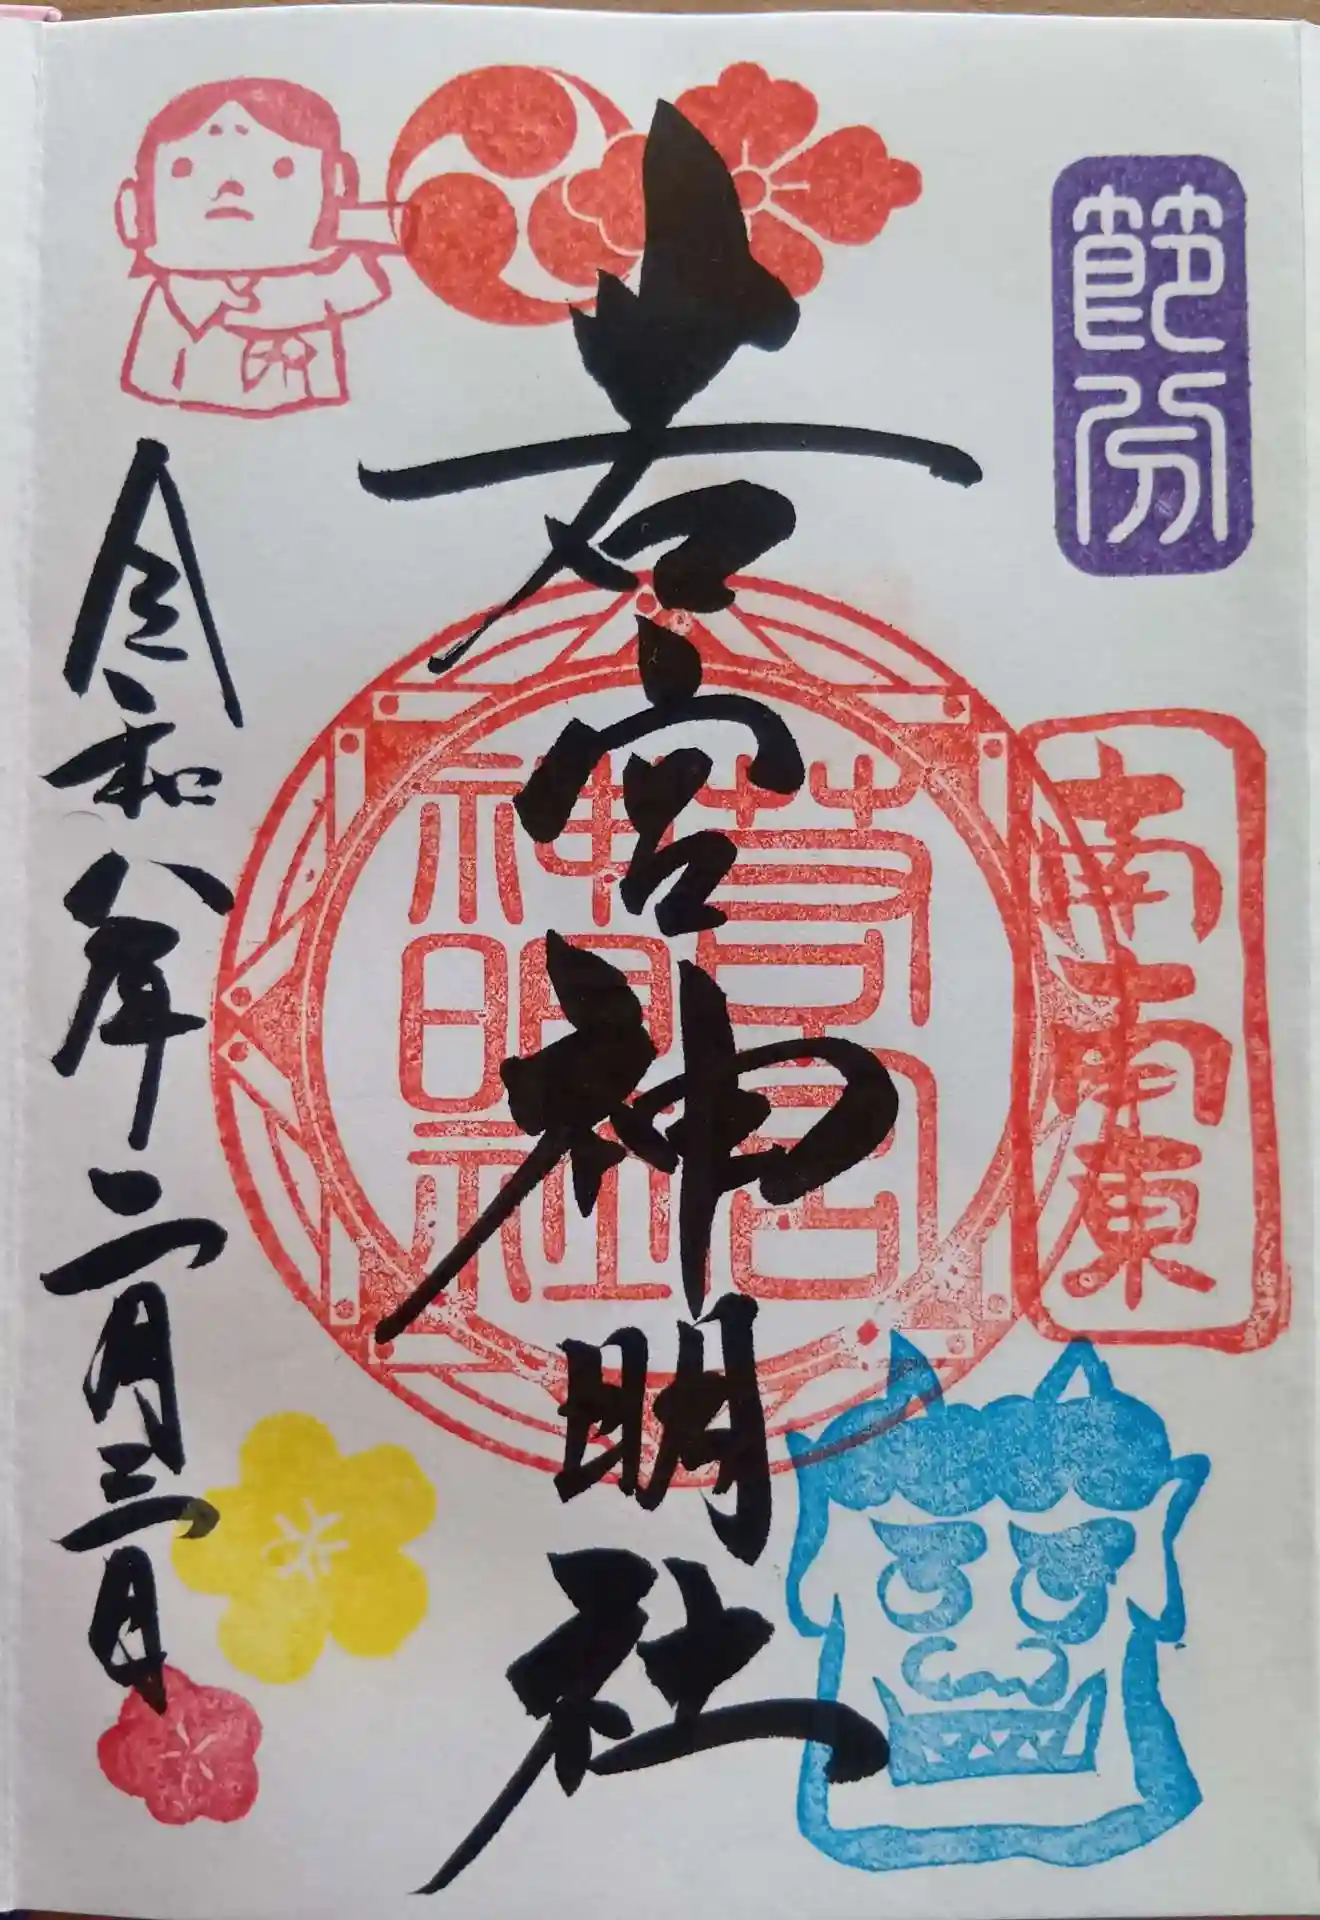 節分
南南東
若宮神明社
若宮
神明社
令和八年二月三日